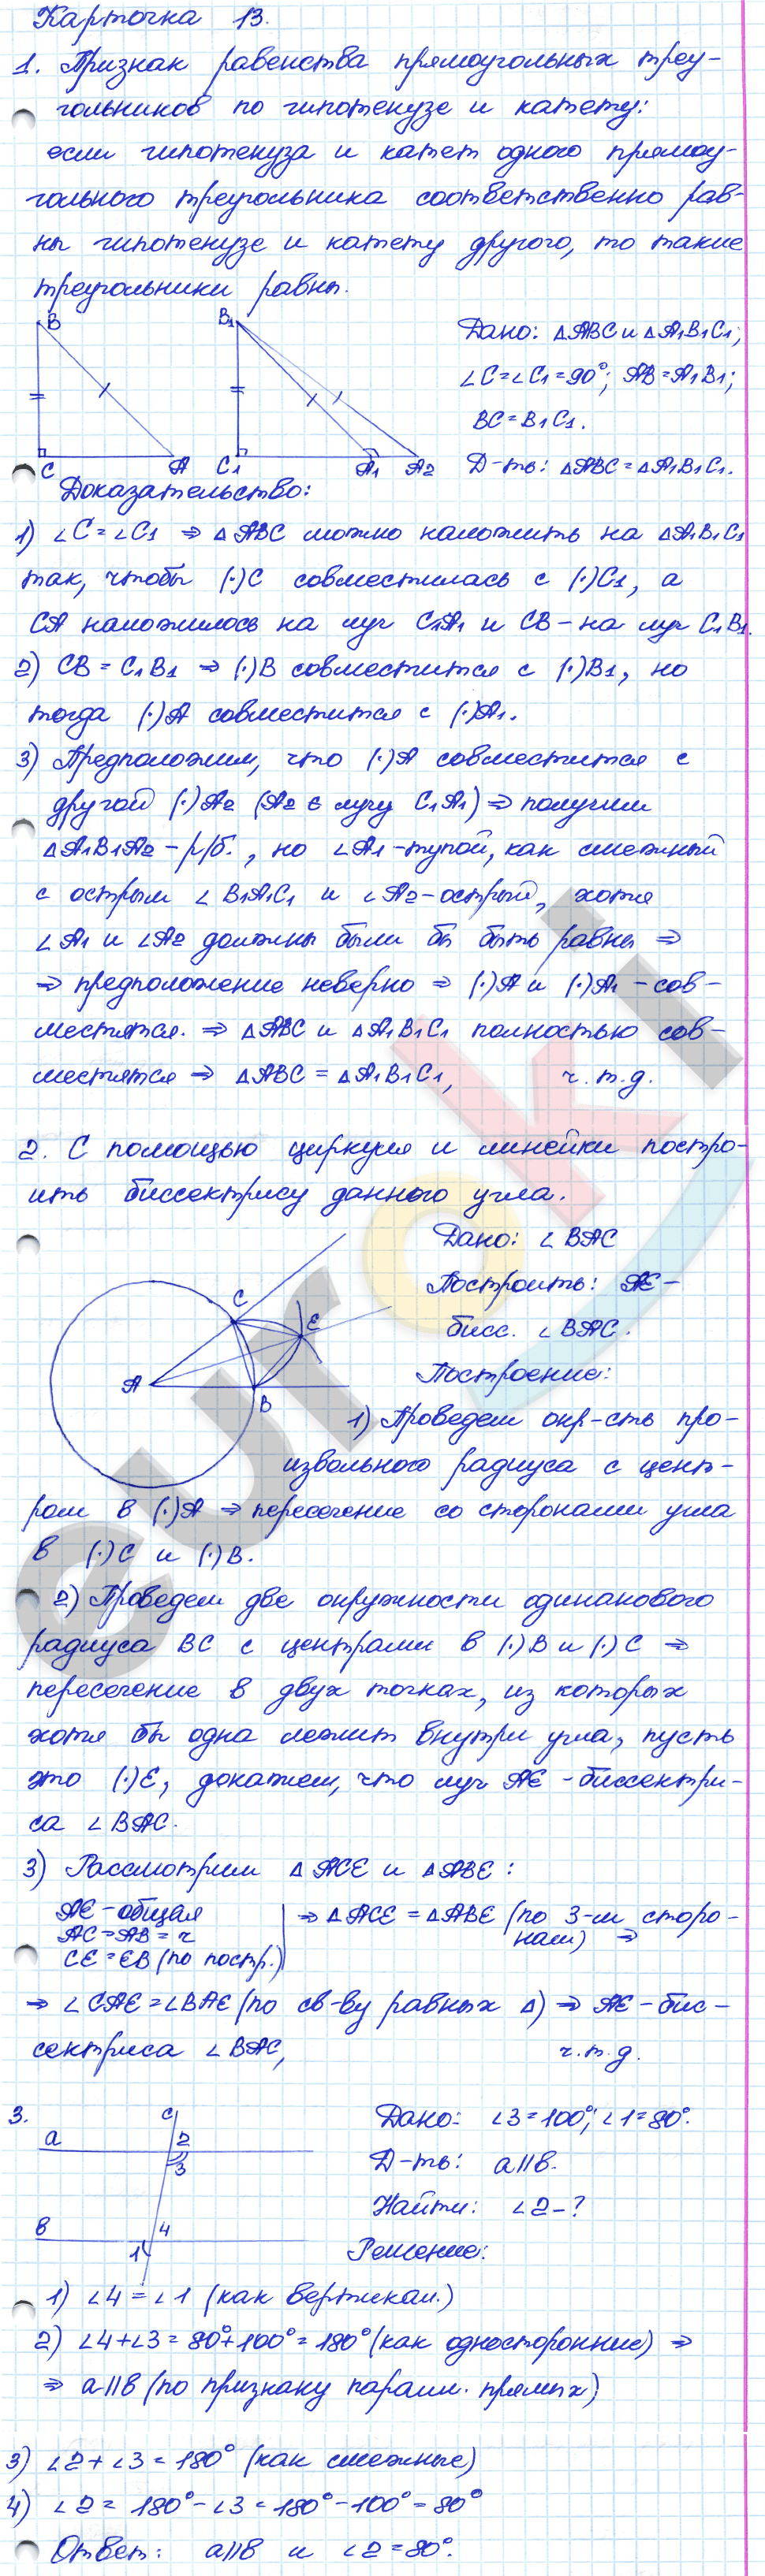 Карточка 13.
1. Признак равенства прямоугольных треу-
гольников по гипотенузе и катету:
если гипотенуза и катет одного прямоу-
гольного треугольника соответственно рав-
ны гипотенузе и катету другого, то такие
треугольники равны.
B
B₁
C
A
C₁
A₁
A₂
Дано: △ABC и △A₁B₁C₁;
∠C=∠C₁=90°; AB=A₁B₁;
BC=B₁C₁.
Д-ть: △ABC=△A₁B₁C₁.
Доказательство:
1) ∠C=∠C₁ ⇒ △ABC можно наложить на △A₁B₁C₁
так, чтобы (·)C совместилась с (·)C₁, а
CA наложилось на луч C₁A₁ и CB – на луч C₁B₁.
2) CB = C₁B₁ ⇒ (·)B совместится с (·)B₁, но
тогда (·)A совместится с (·)A₁.
3) Предположим, что (·)A совместится с
другой (·)A₂ (A₂ ∈ лучу C₁A₁) ⇒ получим
△A₁B₁A₂ – р/б., но ∠A₁ – тупой, как смежный
с острым ∠B₁A₁C₁ и ∠A₂ – острый, хотя
∠A₁ и ∠A₂ должны были бы быть равны ⇒
⇒ предположение неверно ⇒ (·)A и (·)A₁ – сов-
местятся. ⇒ △ABC и △A₁B₁C₁ полностью сов-
местятся ⇒ △ABC = △A₁B₁C₁, ч.т.д.
2. С помощью циркуля и линейки постро-
ить биссектрису данного угла.
C
E
A
B
Дано: ∠BAC
Построить: AE –
бисс. ∠BAC.
Построение:
1) Проведем окр-сть про-
извольного радиуса с цент-
ром в (·)A ⇒ пересечение со сторонами угла
в (·)C и (·)B.
2) Проведем две окружности одинакового
радиуса BC с центрами в (·)B и (·)C ⇒
пересечение в двух точках, из которых
хотя бы одна лежит внутри угла, пусть
это (·)E, докажем, что луч AE – биссектри-
са ∠BAC.
3) Рассмотрим △ACE и △ABE:
AE – общая
AC=AB=r
CE=EB (по постр.)
⇒ △ACE = △ABE (по 3-м сторо-
нам) ⇒
⇒ ∠CAE=∠BAE (по св-ву равных △) ⇒ AE – бис-
сектриса ∠BAC, ч.т.д.
3.
c
a
2
3
b
4
1
Дано: ∠3=100°; ∠1=80°.
Д-ть: a∥b.
Найти: ∠2–?
Решение:
1) ∠4=∠1 (как вертикал.)
2) ∠4+∠3=80°+100°=180° (как односторонние) ⇒
⇒ a∥b (по признаку паралл. прямых)
3) ∠2+∠3=180° (как смежные)
4) ∠2=180°-∠3=180°-100°=80°
Ответ: a∥b и ∠2=80°.
euroki